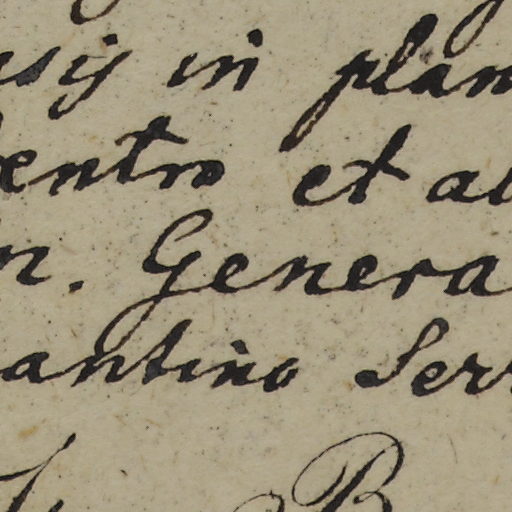 usij in plan
dentro et ab
n. Genera
antino Ser
B